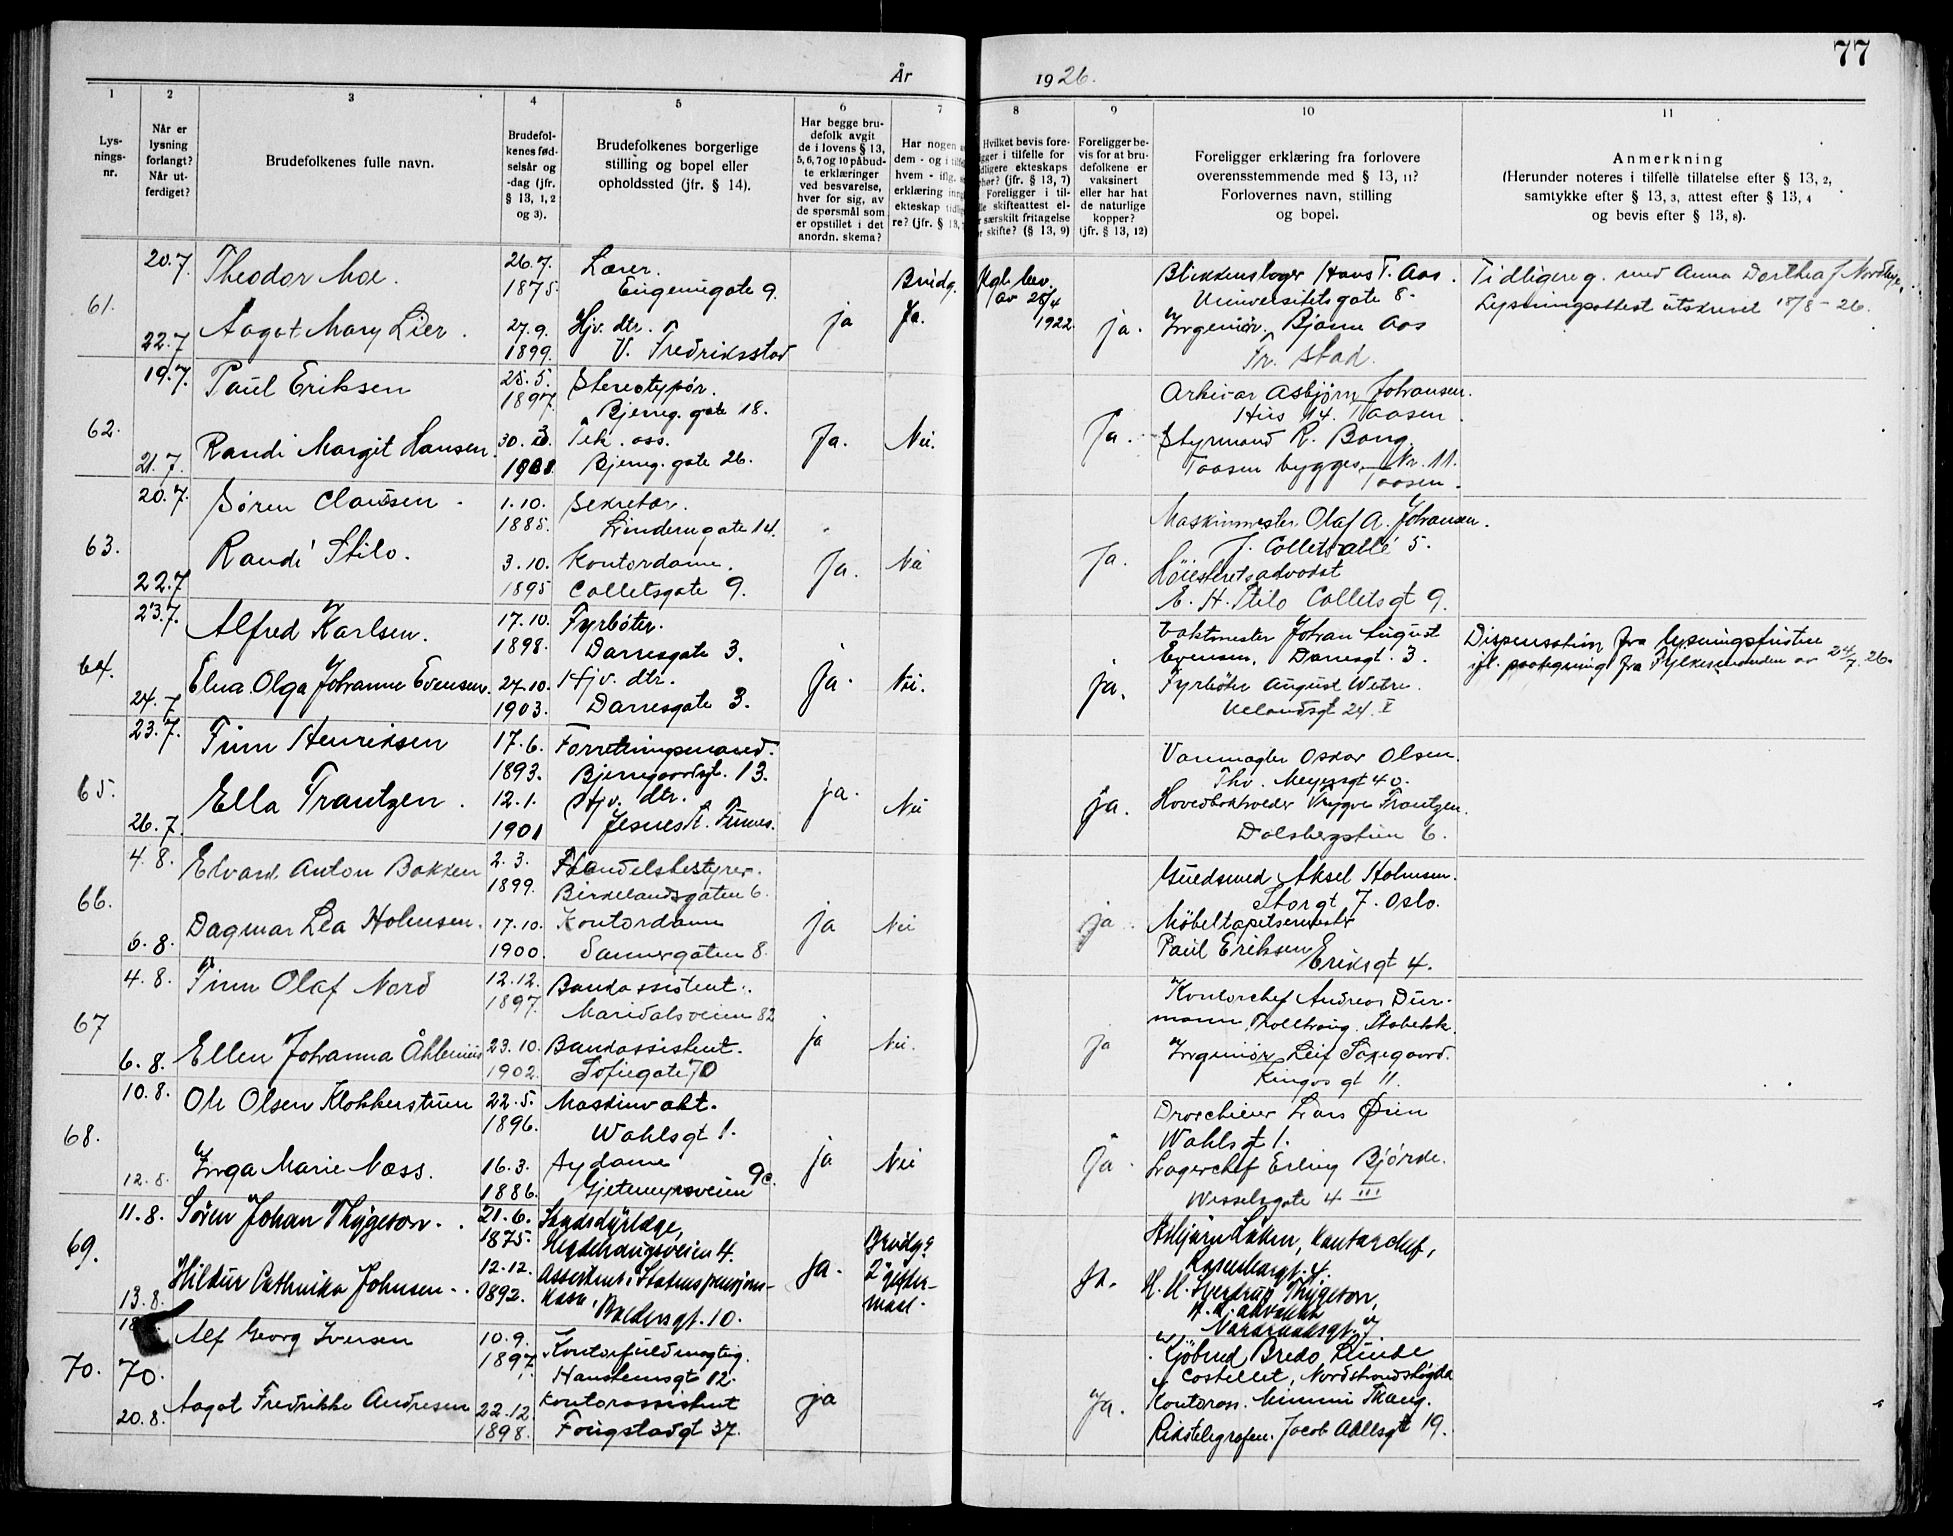 77
År 1926.
1
2
3
4
5
6
7
8
9
10
11
Lys-
nings-
nr.
Når er
lysning
forlangt?
Når ut-
ferdiget?
Brudefolkenes fulle navn.
Brudefol-
kenes fød-
selsår og
-dag (jfr.
§ 13, 1, 2
og 3).
Brudefolkenes borgerlige
stilling og bopel eller
opholdssted (jfr. § 14).
Har begge bru-
defolk avgit
de i lovens § 13,
5, 6, 7 og 10 påbud-
te erklæringer
ved besvarelse,
hver for sig, av
de spørsmål som
er opstillet i det
anordn. skema?
Har nogen
dem - og i
hvem - iflg.
erklæring
ekteskap
re? (jfr. § 13,
Hvilket bevis fore-
i tilfelle for
ekteskaps
(jfr. § 13, 7)
Foreligger i til-
skifteattest el-
særskilt fritagelse
skifte? (§ 13, 9)
Foreligger be-
vis for at bru-
defolkene er
vaksinert
eller har hat
de naturlige
kopper?
(jfr. § 13, 12)
Foreligger erklæring fra forlovere
overensstemmende med § 13, 11?
Forlovernes navn, stilling
og bopel.
Anmerkning
(Herunder noteres i tilfelle tillatelse efter § 13, 2,
samtykke efter § 13, 3, attest efter § 13, 4
og bevis efter § 13, 8).
61.
20.7.
22.7
Theodor Moe.
Aagot Mary Lier.
26.7.
1875
27.9.
1899.
Lærer.
Eugeniigate 9.
Hjv. dtr.
V. Fredriksstad
ja
Brudg.
Ja.
Kgl. bev.
av 25/4
1922
ja.
Blikkenslager Hans T. Aas.
Universitetsgate 8.
Ingeniør. Bjarne Aas
Fr. stad.
Tidligere g. med Anna Dorthea f. Nordbye.
Lysningsattest utskrevet 18/8 - 26.
62.
19.7.
21.7.
Paul Eriksen
Randi Margit Hansen.
25.5.
1897.
30.3.
Stereotypør.
Bjerreg. gate 18.
Tek. ass.
Bjerreg. gate 26.
Ja.
Nei.
Ja.
Arkivar Asbjørn Johansen.
Hus 14. Taasen.
Styrmand R. Bang.
Taasen bygges, Nr. 11.
Taasen.
63.
20.7.
22.7
Søren Claussen.
Randi Stilo.
1.10.
1885.
3.10.
1895
Sekretær.
Linderngate 14.
Kontordame.
Colletsgate 9.
Ja.
Nei
Ja.
Maskinmester Olaf A. Johansen.
J. Collets allé 5.
Høiesteretsadvokat
E. H. Stilo Collets gt 9.
64.
23.7.
24.7
Alfred Karlsen.
Elna Olga Johanne Evensen.
17.10.
1898.
27.10.
1903.
Fyrbøter.
Darresgate 3.
Hjv. dtr.
Darresgate 3.
Ja.
Nei.
ja.
Vaktmester Johan August
Evensen, Darresgt. 3.
Fyrbøter August Wetre.
Uelandsgt 24. I
Dispensation fra lysningsfristen
ifl. paategning fra Fylkesmanden av 24/7. 26.
65.
23.7.
26.7.
Finn Henriksen
Ella Frantzen.
17.6.
1893.
12.1.
1901
Forretningsmand.
Bjerregaardsgt. 13.
Hjv. dtr.
ja.
Nei
ja.
Varemægler Oskar Olsen.
Thv. Meyersgt 40.
Hovedbokholder Trygve Frantzen.
Dalsbergstien 6.
66.
4.8.
6.8.
Edvard Anton Bakken
Dagmar Lea Holmsen.
2.3.
1899.
17.10.
1900.
Handelsbestyrer.
Birkelandsgaten 6.
Kontordame
Sannergaten 8.
ja
Nei
ja.
Guldsmed Aksel Holmsen.
Storgt 7. Oslo.
Møbeltapetsermester
Paul Eriksen
Eriksgt 4.
67
4.8.
6.8.
Finn Olaf Nord
Ellen Johanna Åhlenius
12.12.
1897.
23.10.
1902.
Bankassistent.
Maridalsveien 82
Bankassistent.
Sofiegate 70
ja
Nei.
ja
Kontorchef Andreas Dür-
mann, Stabekk.
Ingeniør Leif Saxegaard.
Kingos gt 11.
68.
10.8.
12.8.
Ole Olsen Klokkerstuen
Inga Marie Næss.
22.5.
1896.
16.3.
1886.
Maskinvakt.
Wahlsgt 1.
Sydame
Gjetemyrsveien 9c.
ja
Nei
ja.
Droscheeier Lars Øien
Wahls gt 1.
Lagerchef Erling Bjørke.
Wesselsgate 4 III
69.
11.8.
13.8.
Søren Johan Thygeson.
Hildur Cathinka Johnsen.
21.6.
1875.
12.12.
1892.
Stadsdyrlæge,
Hegdehaugsveien 4.
Assistent i Statens pensjons-
kasse, Waldersgt. 10.
Ja.
Brudg.
2 gifter-
maal.
ja.
Asbjørn Løken, kontorchef,
H. M. Sverdrup Thygeson,
H. R. advokat
70.
70.
20.8.
Alf Georg Iversen
Aagot Fredrikke Andresen
10.9.
1897
22.12.
1898.
Kontorfuldmægtig.
Hansteensgt 12.
Kontorassistent
Fougstadgt 37.
ja
Ja.
Kjøbmd Bredo Lunde
Costellet, Nordstrandshøgda
Kontorass. Mimmi Skaug.
Rikstelegrafen. Jacob Aallsgt 19.